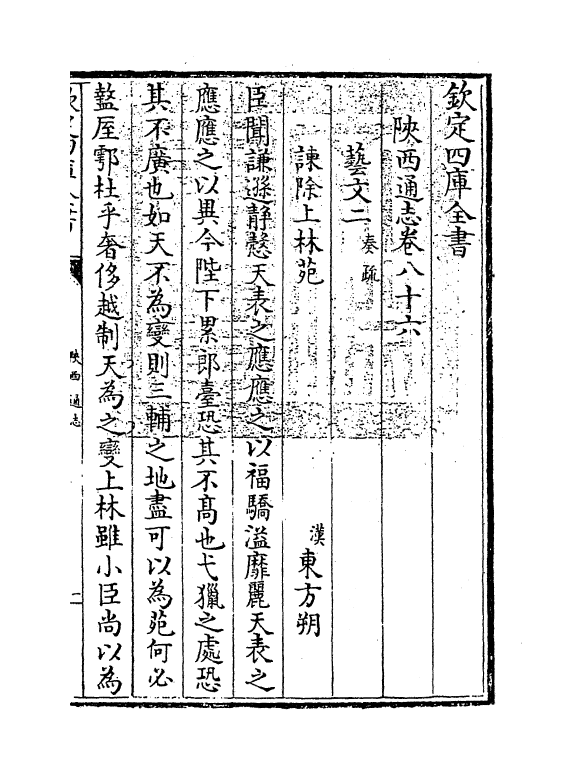 欽定四庫全書
陜西通志卷八十六
藝文二 奏疏
諫除上林苑 漢 東方朔
臣聞謙遜静慤天表之應應之以福驕溢靡麗天表之
應應之以異今陛下累郎臺恐其不髙也弋獵之處恐
其不廣也如天不為變則三輔之地盡可以為苑何必
盩厔鄠杜乎奢侈越制天為之變上林雖小臣尚以為
陜西通志